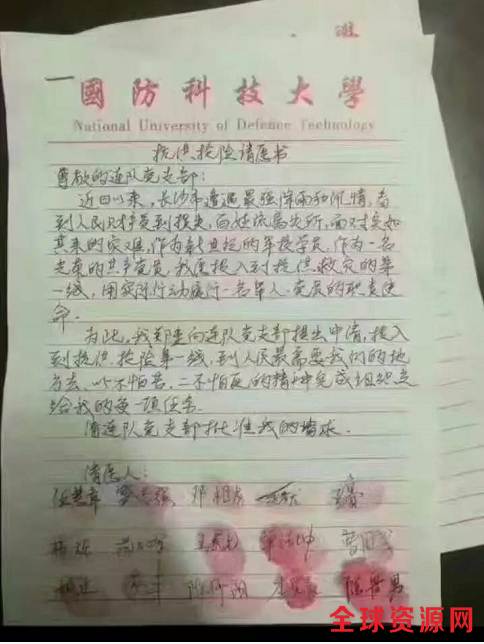 國防科技大學
National University of Defence Technology
抗洪抢险请愿书
尊敬的连队党支部：
近日以来，长沙市遭遇最强降雨和汛情，看
到人民财产受到损失，百姓流离失所，面对突如
其来的灾难，作为新世纪的军校学员，作为一名
光荣的共产党员，我愿投入到抗洪救灾的第
一线，用实际行动履行一名军人、党员的职责使
命。
为此，我郑重向连队党支部提出申请，投入
到抗洪抢险第一线，到人民最需要我们的地
方去，以不怕苦、二不怕死的精神完成组织交
给我的每一项任务。
请连队党支部批准我的请求。
请愿人：
全球资源网